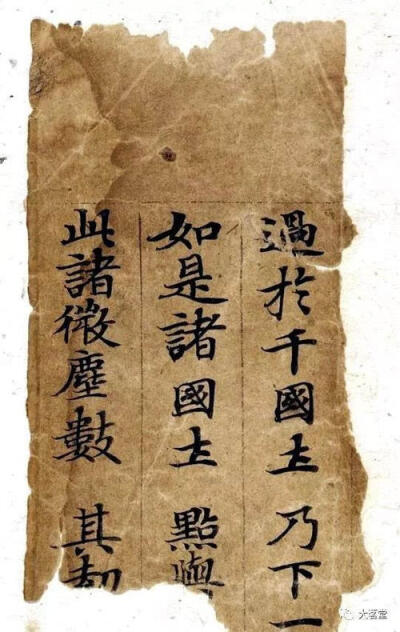 過扵千國土 乃下一
如是諸國土 點與
此諸微塵數 其劫
大茗堂